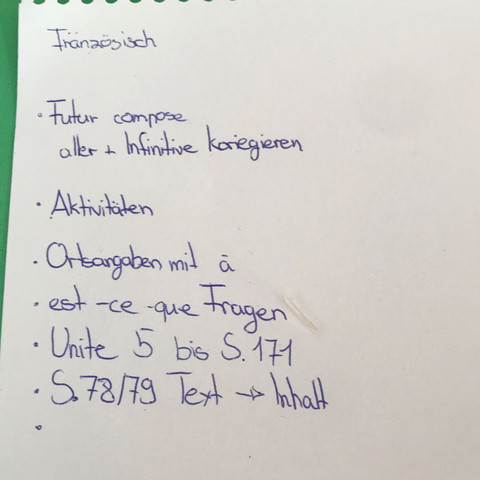 Fränzösisch
• Futur compose
aller + Infinitive koriegieren
• Aktivitäten
• Ortsangaben mit à
• est-ce-que Fragen
• Unite 5 bis S. 171
• S. 78/79 Text → Inhalt
•